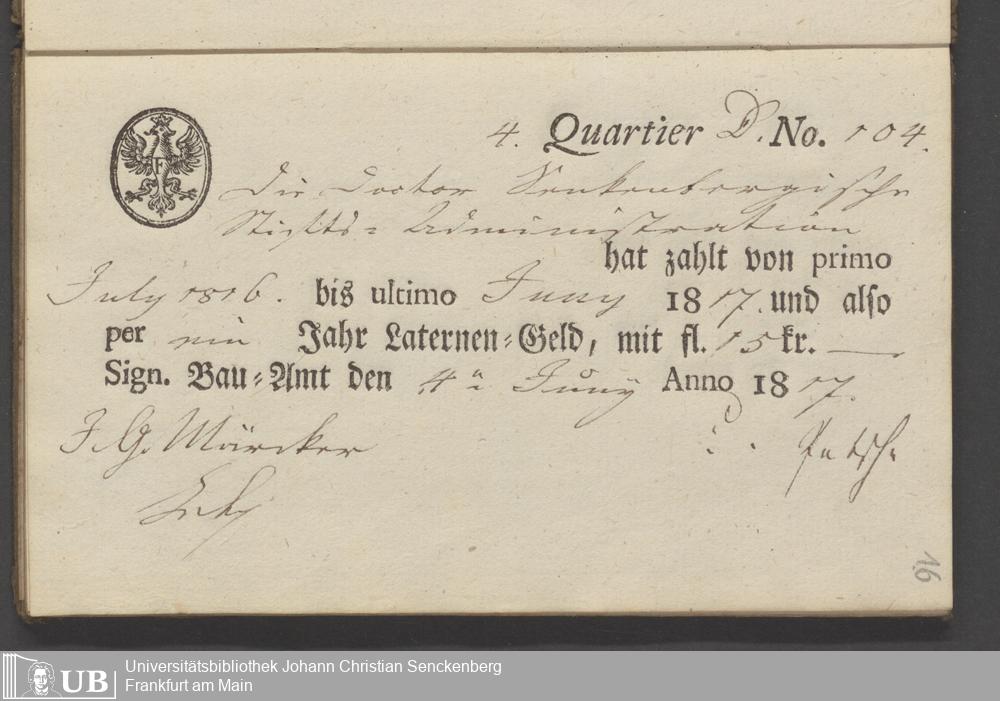 4. Quartier D. No. 104.
Die Doctor Senkenbergische
Stiftts- Administration
hat zahlt von primo
July 1816. bis ultimo Juny 1817. und also
per ein Jahr Laternen-Geld, mit fl. 15 kr. —
Sign. Bau-Amt den 4n Juny Anno 1817.
J. G. Märcker
F
16
Universitätsbibliothek Johann Christian Senckenberg
Frankfurt am Main
UB